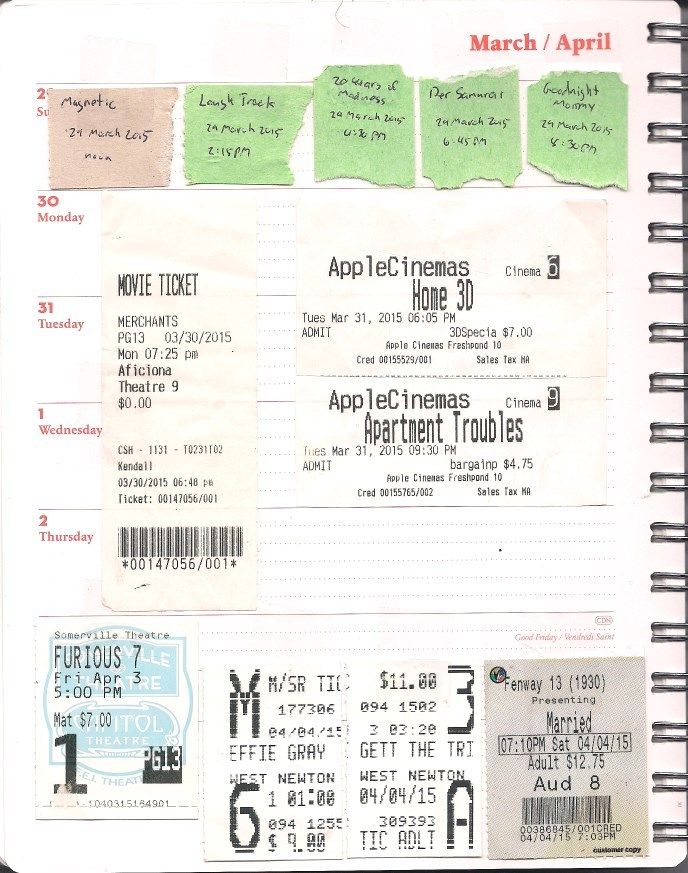 March / April
29
Su
Magnetic
29 March 2015
noon
Laugh Track
29 March 2015
2:15PM
20 Years of
Madness
29 March 2015
4:30 PM
Der Samurai
29 March 2015
6:45PM
Goodnight
Mommy
29 March 2015
8:30PM
30
Monday
31
Tuesday
1
Wednesday
2
Thursday
MOVIE TICKET
MERCHANTS
PG13 03/30/2015
Mon 07:25 pm
Aficiona
Theatre 9
$0.00
CSH - 1131 - T0231T02
Kendall
03/30/2015 06:48 pm
Ticket: 00147056/001
*00147056/001*
AppleCinemas Cinema 6
Home 3D
Tues Mar 31, 2015 06:05 PM
ADMIT 3DSpecia $7.00
Apple Cinemas Freshpond 10
Cred 00155529/001 Sales Tax MA
AppleCinemas Cinema 9
Apartment Troubles
Tues Mar 31, 2015 09:30 PM
ADMIT bargainp $4.75
Apple Cinemas Freshpond 10
Cred 00155765/002 Sales Tax MA
CDN
Good Friday / Vendredi Saint
Somerville Theatre
FURIOUS 7
Fri Apr 3
5:00 PM
Mat $7.00
CAPITOL
THEATRE
1 PG13
F.E.I. THEATR
1040315164901
M/SR TIC
177306
04/04/15
EFFIE GRAY
WEST NEWTON
6 1 01:00
094 1255
$ 9.00
$11.00
094 1502
3 03:20
3
GETT THE TRI
WEST NEWTON
04/04/15
309393
TIC ADLT
A
Fenway 13 (1930)
Presenting
Married
07:10PM Sat 04/04/15
Adult $12.75
Aud 8
00386845/001CRED
04/04/15 7:03PM
customer copy